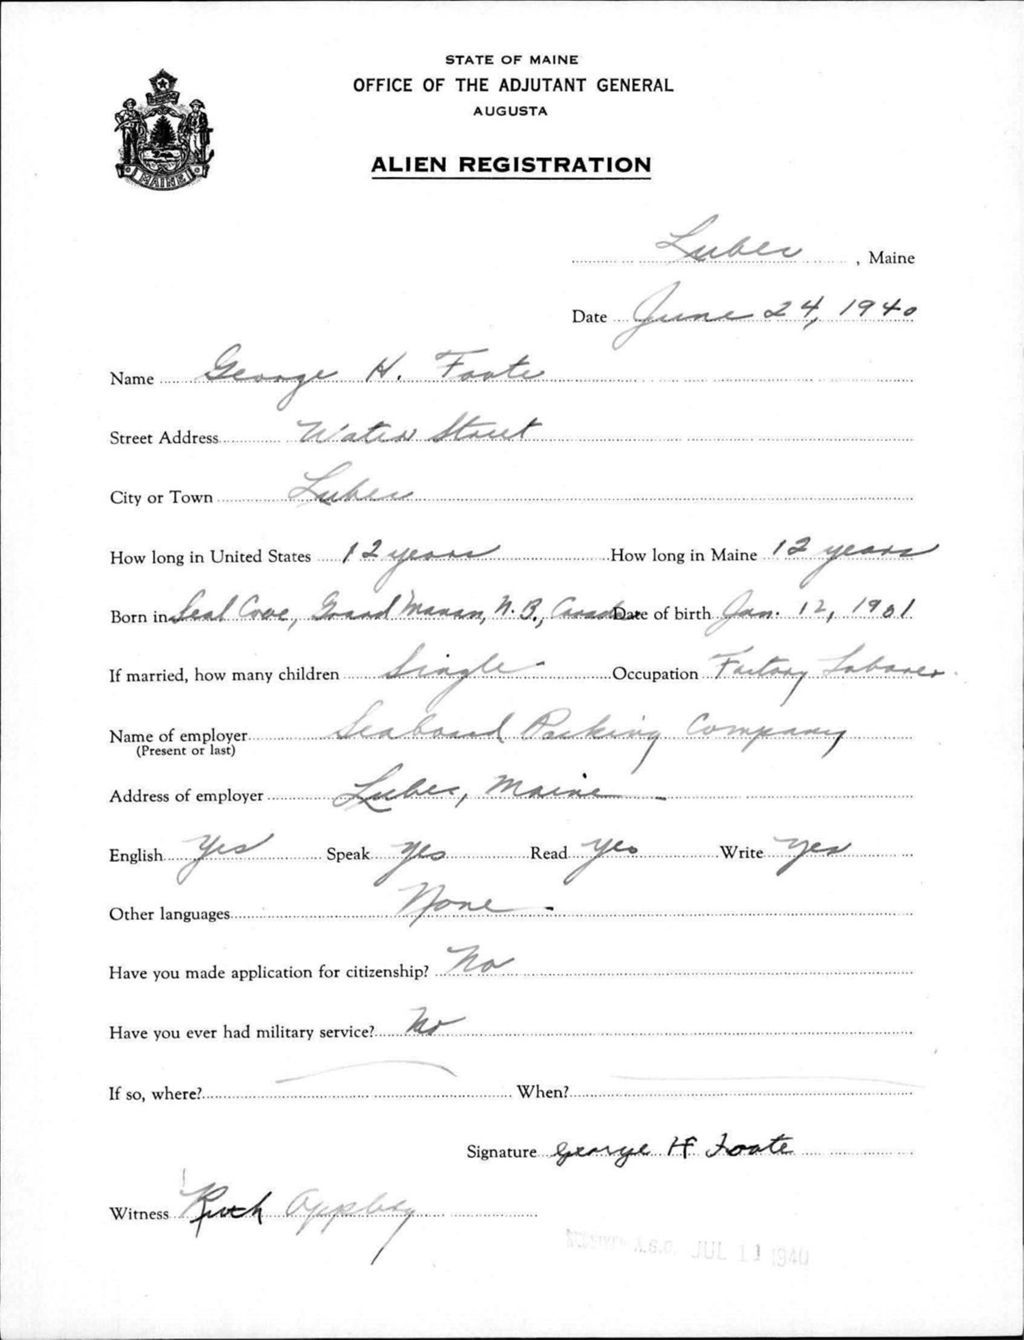 STATE OF MAINE
OFFICE OF THE ADJUTANT GENERAL
AUGUSTA
ALIEN REGISTRATION
MAINE
Lubec, Maine
Date June 24, 1940
Name George H. Foote
Street Address Water Street
City or Town Lubec
How long in United States 12 years How long in Maine 12 years
Born in Seal Cove, Grand Manan, N.B., Canada Date of birth Jan. 12, 1901
If married, how many children Single Occupation Factory Laborer
Name of employer Seaboard Packing Company
(Present or last)
Address of employer Lubec, Maine
English Yes Speak Yes Read Yes Write Yes
Other languages None
Have you made application for citizenship? No
Have you ever had military service? No
If so, where? When?
Signature George H Foote
Witness Ruth Appleby
A.G.O. JUL 1940